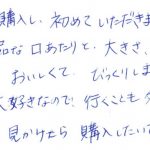 購入し、初めていただきま
品な口あたりと、大きさ、
おいしくて、びっくりしま
大好きなので、行くことも
見かけたら購入したいで